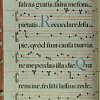 saluas gratis. salua me fons
pietatis. Recordare iesu
pie. quod sum causa tue uie
ne me perdas illa die. Q
rens me sedisti lassus rede